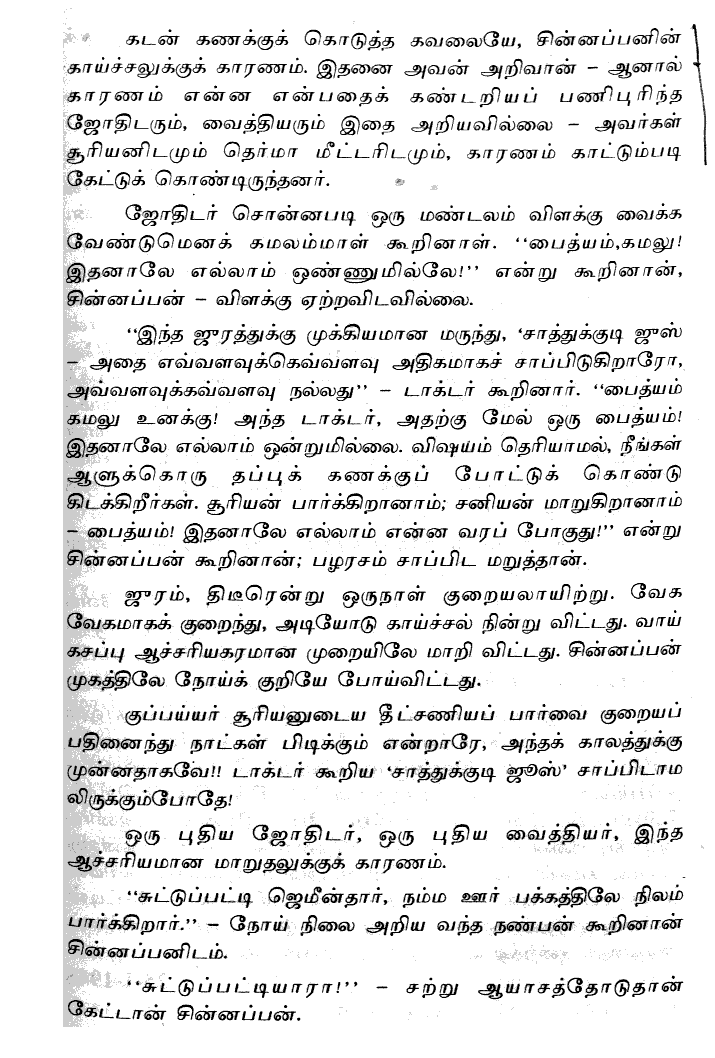 கடன் கணக்குக் கொடுத்த கவலையே, சின்னப்பனின்
காய்ச்சலுக்குக் காரணம். இதனை அவன் அறிவான் – ஆனால்
காரணம் என்ன என்பதைக் கண்டறியப் பணிபுரிந்த
ஜோதிடரும், வைத்தியரும் இதை அறியவில்லை – அவர்கள்
சூரியனிடமும் தெர்மா மீட்டரிடமும், காரணம் காட்டும்படி
கேட்டுக் கொண்டிருந்தனர்.
ஜோதிடர் சொன்னபடி ஒரு மண்டலம் விளக்கு வைக்க
வேண்டுமெனக் கமலம்மாள் கூறினாள். “பைத்யம்,கமலு!
இதனாலே எல்லாம் ஒண்ணுமில்லே!” என்று கூறினான்,
சின்னப்பன் – விளக்கு ஏற்றவிடவில்லை.
“இந்த ஜுரத்துக்கு முக்கியமான மருந்து, ‘சாத்துக்குடி ஜுஸ்
– அதை எவ்வளவுக்கெவ்வளவு அதிகமாகச் சாப்பிடுகிறாரோ,
அவ்வளவுக்கவ்வளவு நல்லது” – டாக்டர் கூறினார். “பைத்யம்
கமலு உனக்கு! அந்த டாக்டர், அதற்கு மேல் ஒரு பைத்யம்!
இதனாலே எல்லாம் ஒன்றுமில்லை. விஷய்ம் தெரியாமல், நீங்கள்
ஆளுக்கொரு தப்புக் கணக்குப் போட்டுக் கொண்டு
கிடக்கிறீர்கள். சூரியன் பார்க்கிறானாம்; சனியன் மாறுகிறானாம்
– பைத்யம்! இதனாலே எல்லாம் என்ன வரப் போகுது!” என்று
சின்னப்பன் கூறினான்; பழரசம் சாப்பிட மறுத்தான்.
ஜுரம், திடீரென்று ஒருநாள் குறையலாயிற்று. வேக
வேகமாகக் குறைந்து, அடியோடு காய்ச்சல் நின்று விட்டது. வாய்
கசப்பு ஆச்சரியகரமான முறையிலே மாறி விட்டது. சின்னப்பன்
முகத்திலே நோய்க் குறியே போய்விட்டது.
குப்பய்யர் சூரியனுடைய தீட்சணியப் பார்வை குறையப்
பதினைந்து நாட்கள் பிடிக்கும் என்றாரே, அந்தக் காலத்துக்கு
முன்னதாகவே!! டாக்டர் கூறிய ‘சாத்துக்குடி ஜூஸ்’ சாப்பிடாம
லிருக்கும்போதே!
ஒரு புதிய ஜோதிடர், ஒரு புதிய வைத்தியர், இந்த
ஆச்சரியமான மாறுதலுக்குக் காரணம்.
“சுட்டுப்பட்டி ஜெமீன்தார், நம்ம ஊர் பக்கத்திலே நிலம்
பார்க்கிறார்.” – நோய் நிலை அறிய வந்த நண்பன் கூறினான்
சின்னப்பனிடம்.
“சுட்டுப்பட்டியாரா!” – சற்று ஆயாசத்தோடுதான்
கேட்டான் சின்னப்பன்.